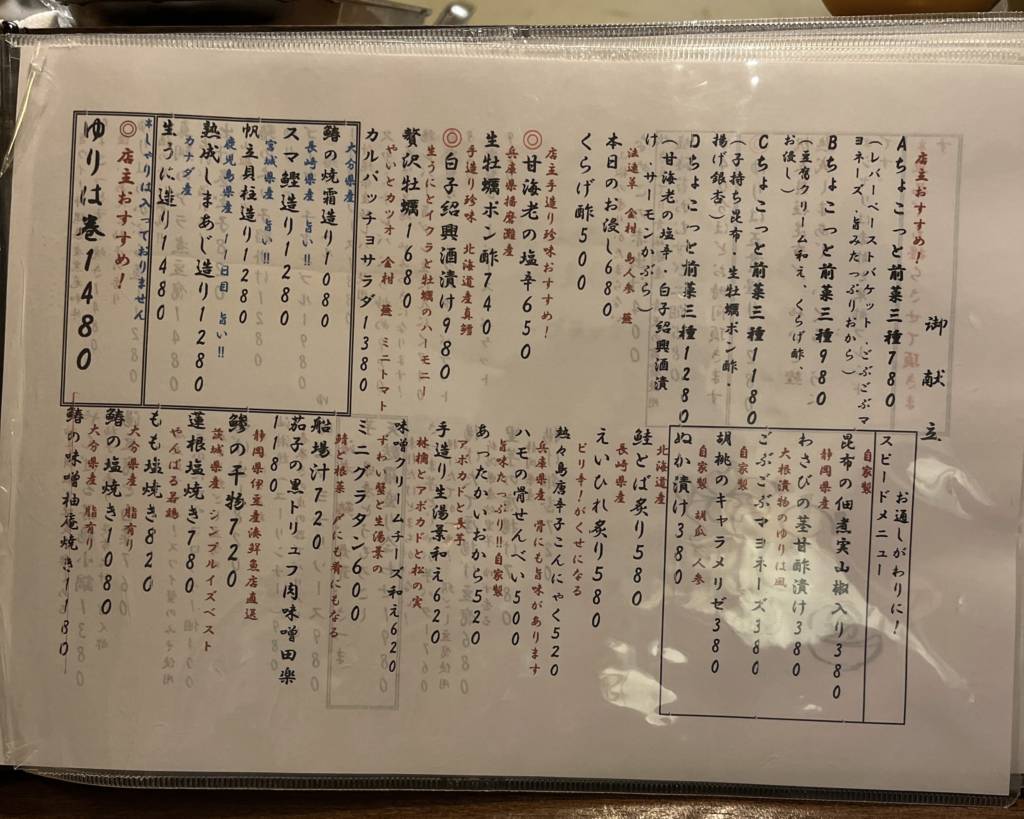 御献立
店主おすすめ!
Aちょこっと前菜三種780
(レバーペーストバケット・ごぶごぶマ
ヨネーズ・旨みたっぷりおから)
Bちょこっと前菜三種980
(豆腐クリーム和え、くらげ酢、
お浸し)
Cちょこっと前菜三種1180
(子持ち昆布・生牡蠣ポン酢・
揚げ銀杏)
Dちょこっと前菜三種1280
(甘海老の塩辛・白子紹興酒漬
け・サーモンかぶら)
法蓮草 金柑 島人参 蕪
本日のお浸し680
くらげ酢500
店主手造り珍味おすすめ!
◎甘海老の塩辛650
兵庫県播磨灘産
生牡蠣ポン酢740
手造り珍味 北海道産真鱈
◎白子紹興酒漬け980
生うにとイクラと牡蠣のハーモニー
贅沢牡蠣1680
スマやいとカツオ 金柑 蕪 ミニトマト
カルパッチョサラダ1380
大分県産
鰆の焼霜造り1080
長崎県産 旨い!!
スマ鰹造り1280
宮城県産
帆立貝柱造り1280
鹿児島県産 11日目 旨い!!
熟成しまあじ造り1280
カナダ産
生うに造り1480
*しゃりは入っておりません
◎店主おすすめ!
ゆりは巻1480
お通しがわりに!
スピードメニュー
自家製
昆布の佃煮実山椒入り380
静岡県産
わさびの茎甘酢漬け380
大根漬物のゆりは風
ごぶごぶマヨネーズ380
自家製
胡桃のキャラメリゼ380
自家製 胡瓜 人参
ぬか漬け380
北海道産
鮭とば炙り580
長崎県産
えいひれ炙り580
ピリ辛!がくせになる
熱々島唐辛子こんにゃく520
兵庫県産 骨にも旨味があります
ハモの骨せんべい500
旨味たっぷり!!自家製
あったかいおから520
アボカドと長芋
手造り生湯葉和え620
林檎とアボカドと松の実
味噌クリームチーズ和え620
ずわい蟹と生湯葉の
ミニグラタン600
鯖と根菜 〆にも肴にもなる
船場汁720
茄子の黒トリュフ肉味噌田楽
1180
静岡県伊豆産湊鮮魚店直送
鯵の干物720
茨城県産 シンプルイズベスト
蓮根塩焼き780
やんばる若鶏
もも塩焼き820
大分県産 脂有り
鰆の塩焼き1080
大分県産 脂有り
鰆の味噌柚庵焼き1180